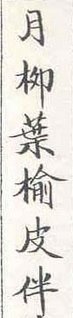 月柳葉榆皮伴